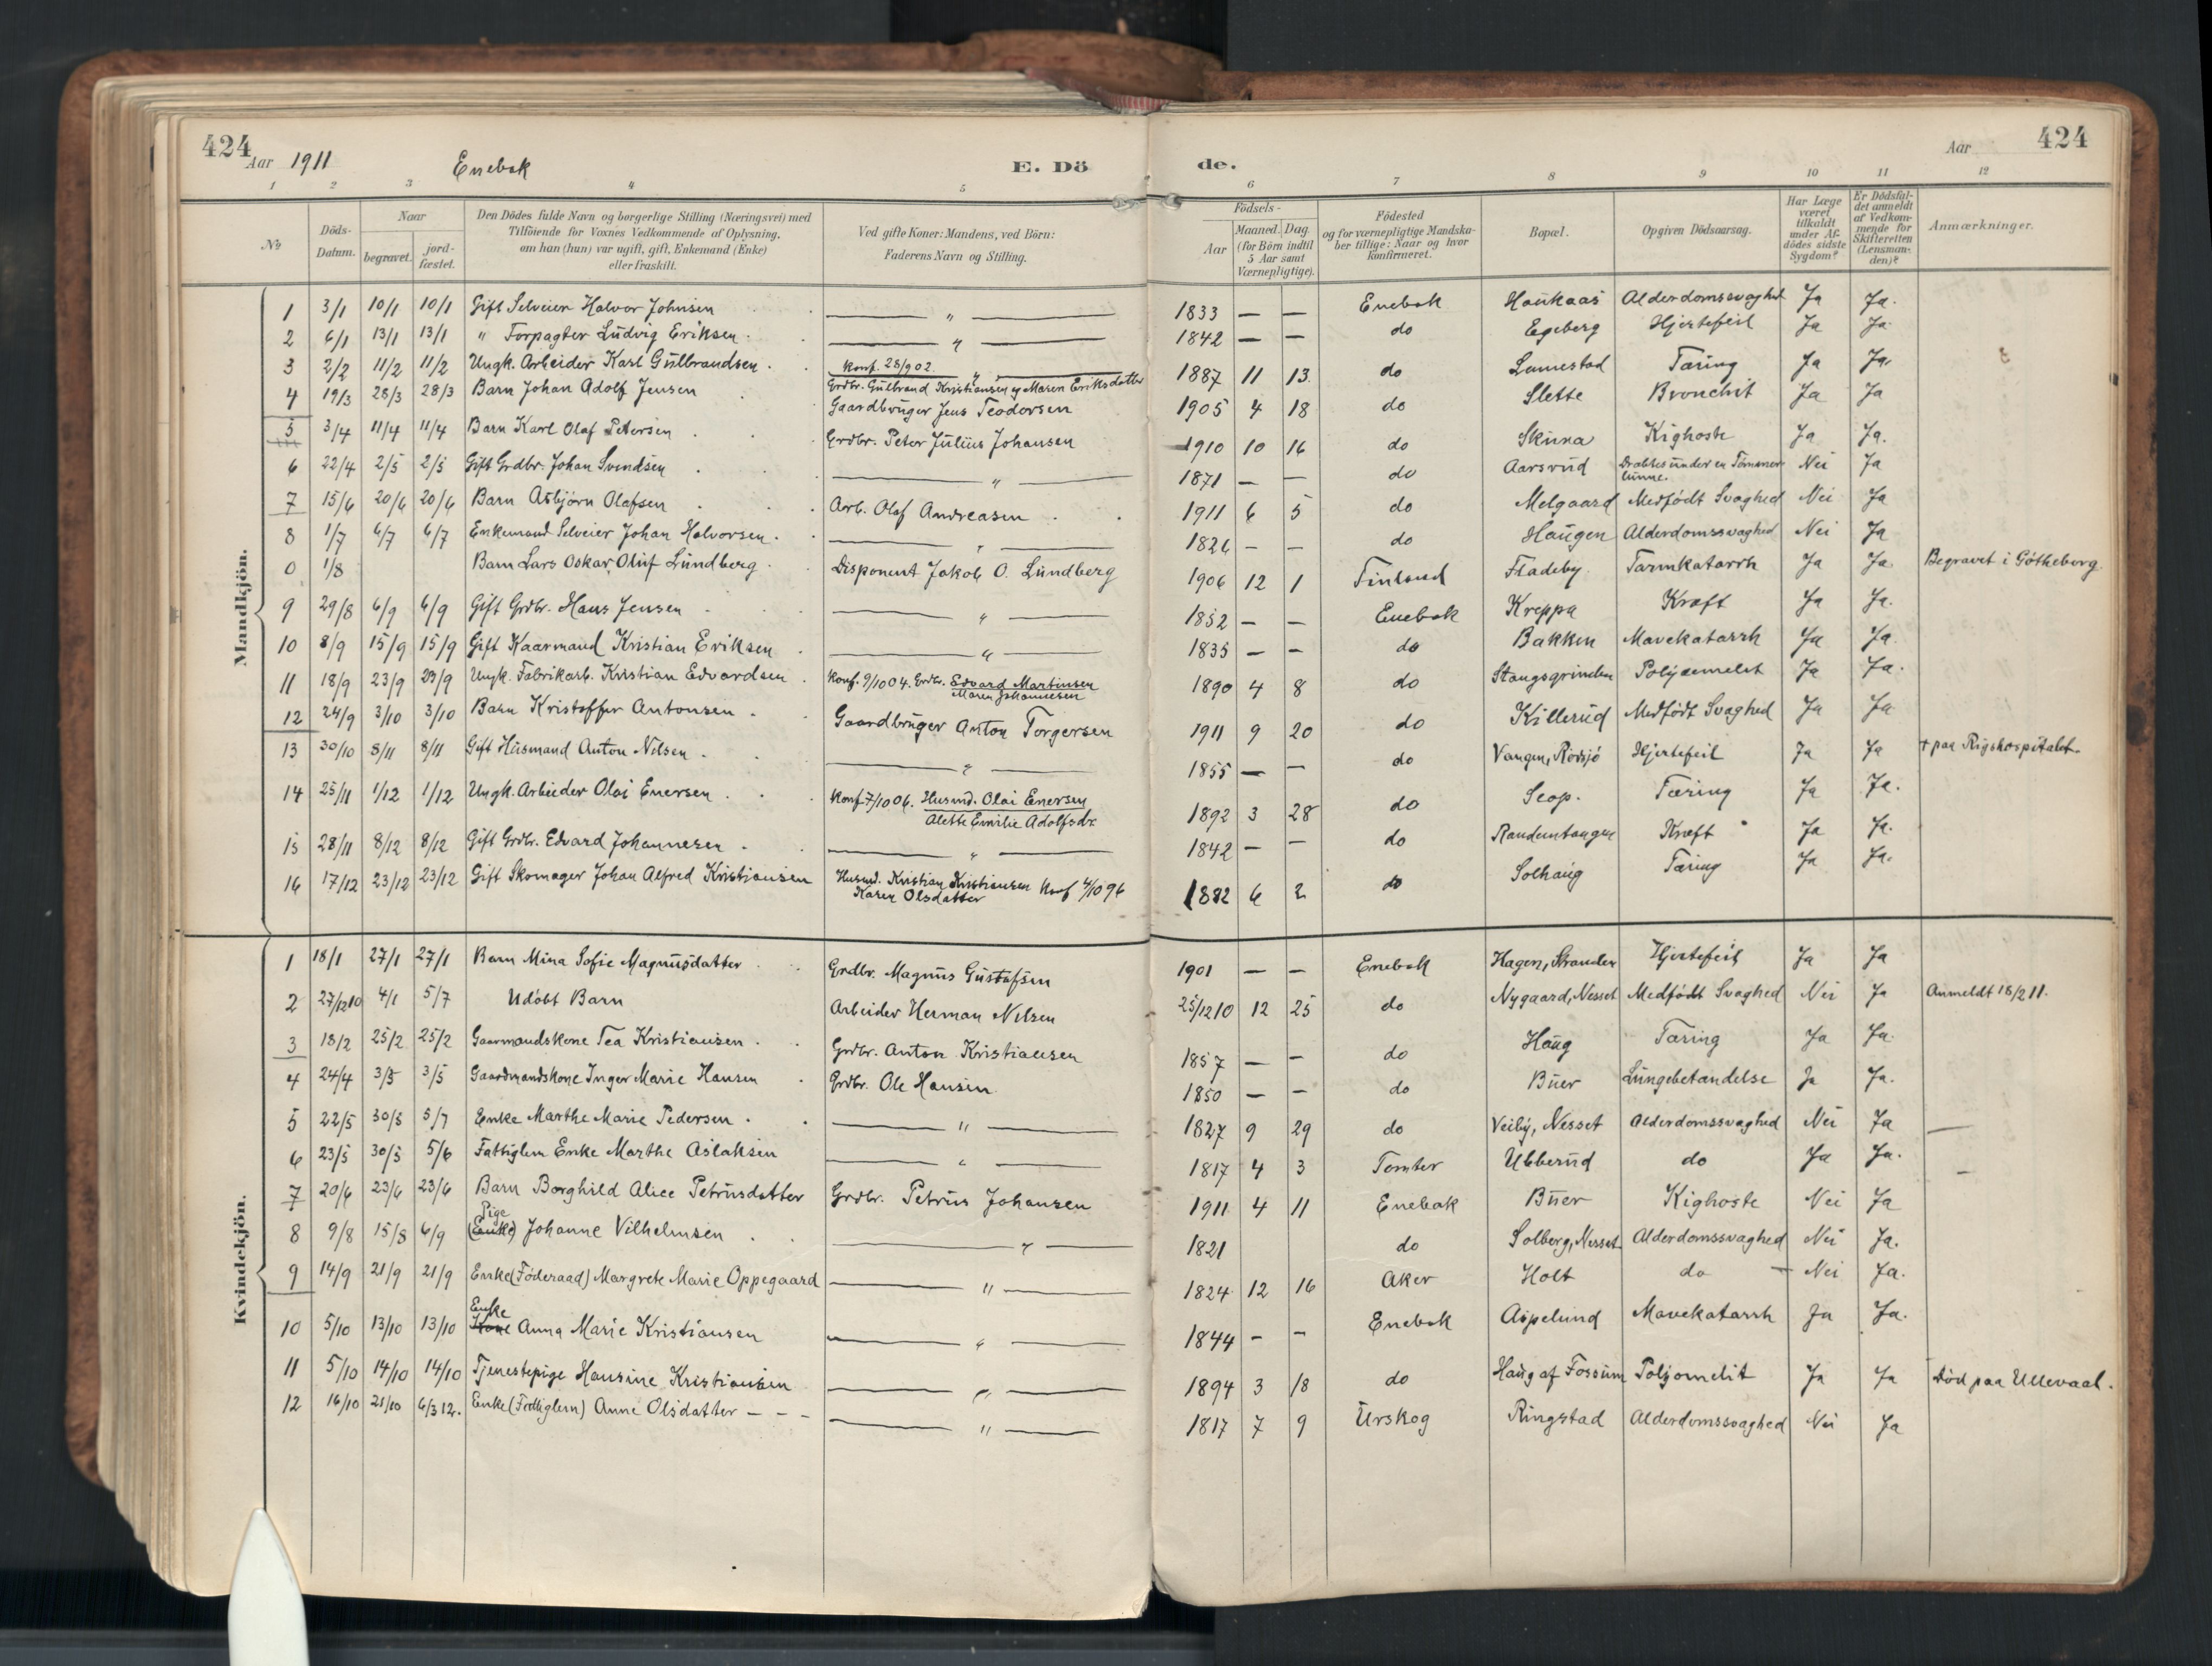 424 Aar 1911 Enebak E. Dö de. Aar 424
1 2 3 4 5 6 7 8 9 10 11 12
No Döds-Datum. Naar begravet. jord-fæstet. Den Dödes fulde Navn og borgerlige Stilling (Næringsvei) med Tilföiende for Voxnes Vedkommende af Oplysning, om han (hun) var ugift, gift, Enkemand (Enke) eller fraskilt. Ved gifte Koner: Mandens, ved Börn: Faderens Navn og Stilling. Födsels- Aar Maaned. Dag. (for Börn indtil 5 Aar samt Værnepligtige). Födested og for værnepligtige Mandskaber tillige: Naar og hvor konfirmeret. Bopæl. Opgiven Dödsaarsag. Har Læge været tilkaldt under Afdödes sidste Sygdom? Er Dödsfaldet anmeldt af Vedkommende for Skifteretten (Lensmanden)? Anmærkninger.
Mandkjön.
1 3/1 10/1 10/1 Gift Selveier Halvor Johnsen " 1833 — — Enebak Haukaas Alderdomssvaghet Ja Ja.
2 6/1 13/1 13/1 " Forpagter Ludvig Eriksen " 1842 — — do Egeberg Hjertefeil Ja Ja
3 2/2 11/2 11/2 Ungk. Arbeider Karl Gulbrandsen Konf. 28/9 02. Grdbr. Gulbrand Kristiansen og Maren Eriksdatter 1887 11 13 do Lunnestad Tæring Ja Ja
4 19/3 28/3 28/3 Barn Johan Adolf Jensen Gaardbruger Jens Teodorsen 1905 4 18 do Slette Bronchit Ja Ja
5 3/4 11/4 11/4 Barn Karl Olaf Petersen Grdbr. Peter Julius Johansen 1910 10 16 do Skura Kighoste Ja Ja.
6 22/4 2/5 2/5 Gift Grdbr. Johan Svendsen " 1871 — — do Aarsrud Dræbtes under en Tömmerlunne. Nei Ja
7 15/6 20/6 20/6 Barn Asbjörn Olafsen Arb. Olaf Andreasen 1911 6 5 do Melgaard Medfödt Svaghed Nei Ja
8 1/7 6/7 6/7 Enkemand Selveier Johan Halvorsen " 1826 — — do Haugen Alderdomssvaghed Nei Ja
0 1/8 Barn Lars Oskar Oluf Lundberg Disponent Jakob O. Lundberg 1906 12 1 Finland Fladeby Tarmkatarrh Ja Ja Begravet i Götheborg
9 29/8 6/9 6/9 Gift Grdbr. Hans Jensen " 1852 — — Enebak Kreppa Kræft Ja Ja.
10 8/9 15/9 15/9 Gift Kaarmand Kristian Eriksen " 1835 — — do Bakken Mavekatarrh Ja Ja
11 18/9 23/9 23/9 Ungk. Fabrikarb. Kristian Edvardsen Konf. 9/10 04. Grdbr. Edvard Martinsen Maren Johannesen 1890 4 8 do Stangsgrinden Ja Ja.
12 24/9 3/10 3/10 Barn Kristoffer Antonsen Gaardbruger Anton Torgersen 1911 9 20 do Killerud Medfödt Svaghed Ja Ja
13 30/10 8/11 8/11 Gift Husmand Anton Nilsen " 1855 — — do Vangen, Hjertefeil Ja Ja † paa Rigshospitalet
14 25/11 1/12 1/12 Ungk. Arbeider Olai Enersen Konf. 7/10 06. Husmd. Olai Enersen Alette Emilie Adolfsdr. 1892 3 28 do Tæring Ja Ja.
15 28/11 8/12 8/12 Gift Grdbr. Edvard Johannesen " 1842 — — do Kræft Ja Ja.
16 17/12 23/12 23/12 Gift Skomager Johan Alfred Kristiansen Husmd. Kristian Kristiansen Karen Olsdatter Konf 4/10 96 1882 6 2 do Solhaug Tæring Ja Ja.
Kvindekjön.
1 18/1 27/1 27/1 Barn Mina Sofie Magnusdatter Grdbr. Magnus Gustafsen 1901 — — Enebak Hagen, Stranden Hjertefeil Ja Ja
2 27/12 10 4/1 5/7 Udöbt Barn Arbeider Herman Nilsen 25/12 10 12 25 do Nygaard, Nesset Medfödt Svaghed Nei Ja Anmeldt 18/2 11.
3 18/2 25/2 25/2 Gaarmandskone Tea Kristiansen Grdbr. Anton Kristiansen 1857 — — do Haug Tæring Ja Ja
4 24/4 3/5 3/5 Gaardmandskone Inger Marie Hansen Grdbr. Ole Hansen 1850 — — do Buer Lungebetændelse Ja Ja.
5 22/5 30/5 5/7 Enke Marthe Marie Pedersen " 1827 9 29 do Veiby, Nesset Alderdomssvaghed Nei Ja —
6 23/5 30/5 5/6 Fattiglem Enke Marthe Aslaksen " 1817 4 3 Tomter Ubberud do Ja Ja. —
7 20/6 23/6 23/6 Barn Borghild Alice Petrusdatter Grdbr. Petrus Johansen 1911 4 11 Enebak Buer Kighoste Nei Ja
8 9/8 15/8 6/9 Pige (Enke) Johanne Vilhelmsen " 1821 do Solberg, Nesset Alderdomssvaghed Nei Ja.
9 14/9 21/9 21/9 Enke (Föderaad) Margrete Marie Oppegaard " 1824 12 16 Aker Holt do — Nei Ja.
10 5/10 13/10 13/10 Enke Kone Anna Marie Kristiansen " 1844 — — Enebak Aspelund Mavekatarrh Ja Ja.
11 5/10 14/10 14/10 Tjenestepige Hansine Kristiansen " 1894 3 18 do Haug af Fossum Ja Ja Död paa Ullevaal.
12 16/10 21/10 6/3 12. Enke (Fattiglem) Anne Olsdatter — — — " 1817 7 9 Urskog Ringstad Alderdomssvaghed Nei Ja